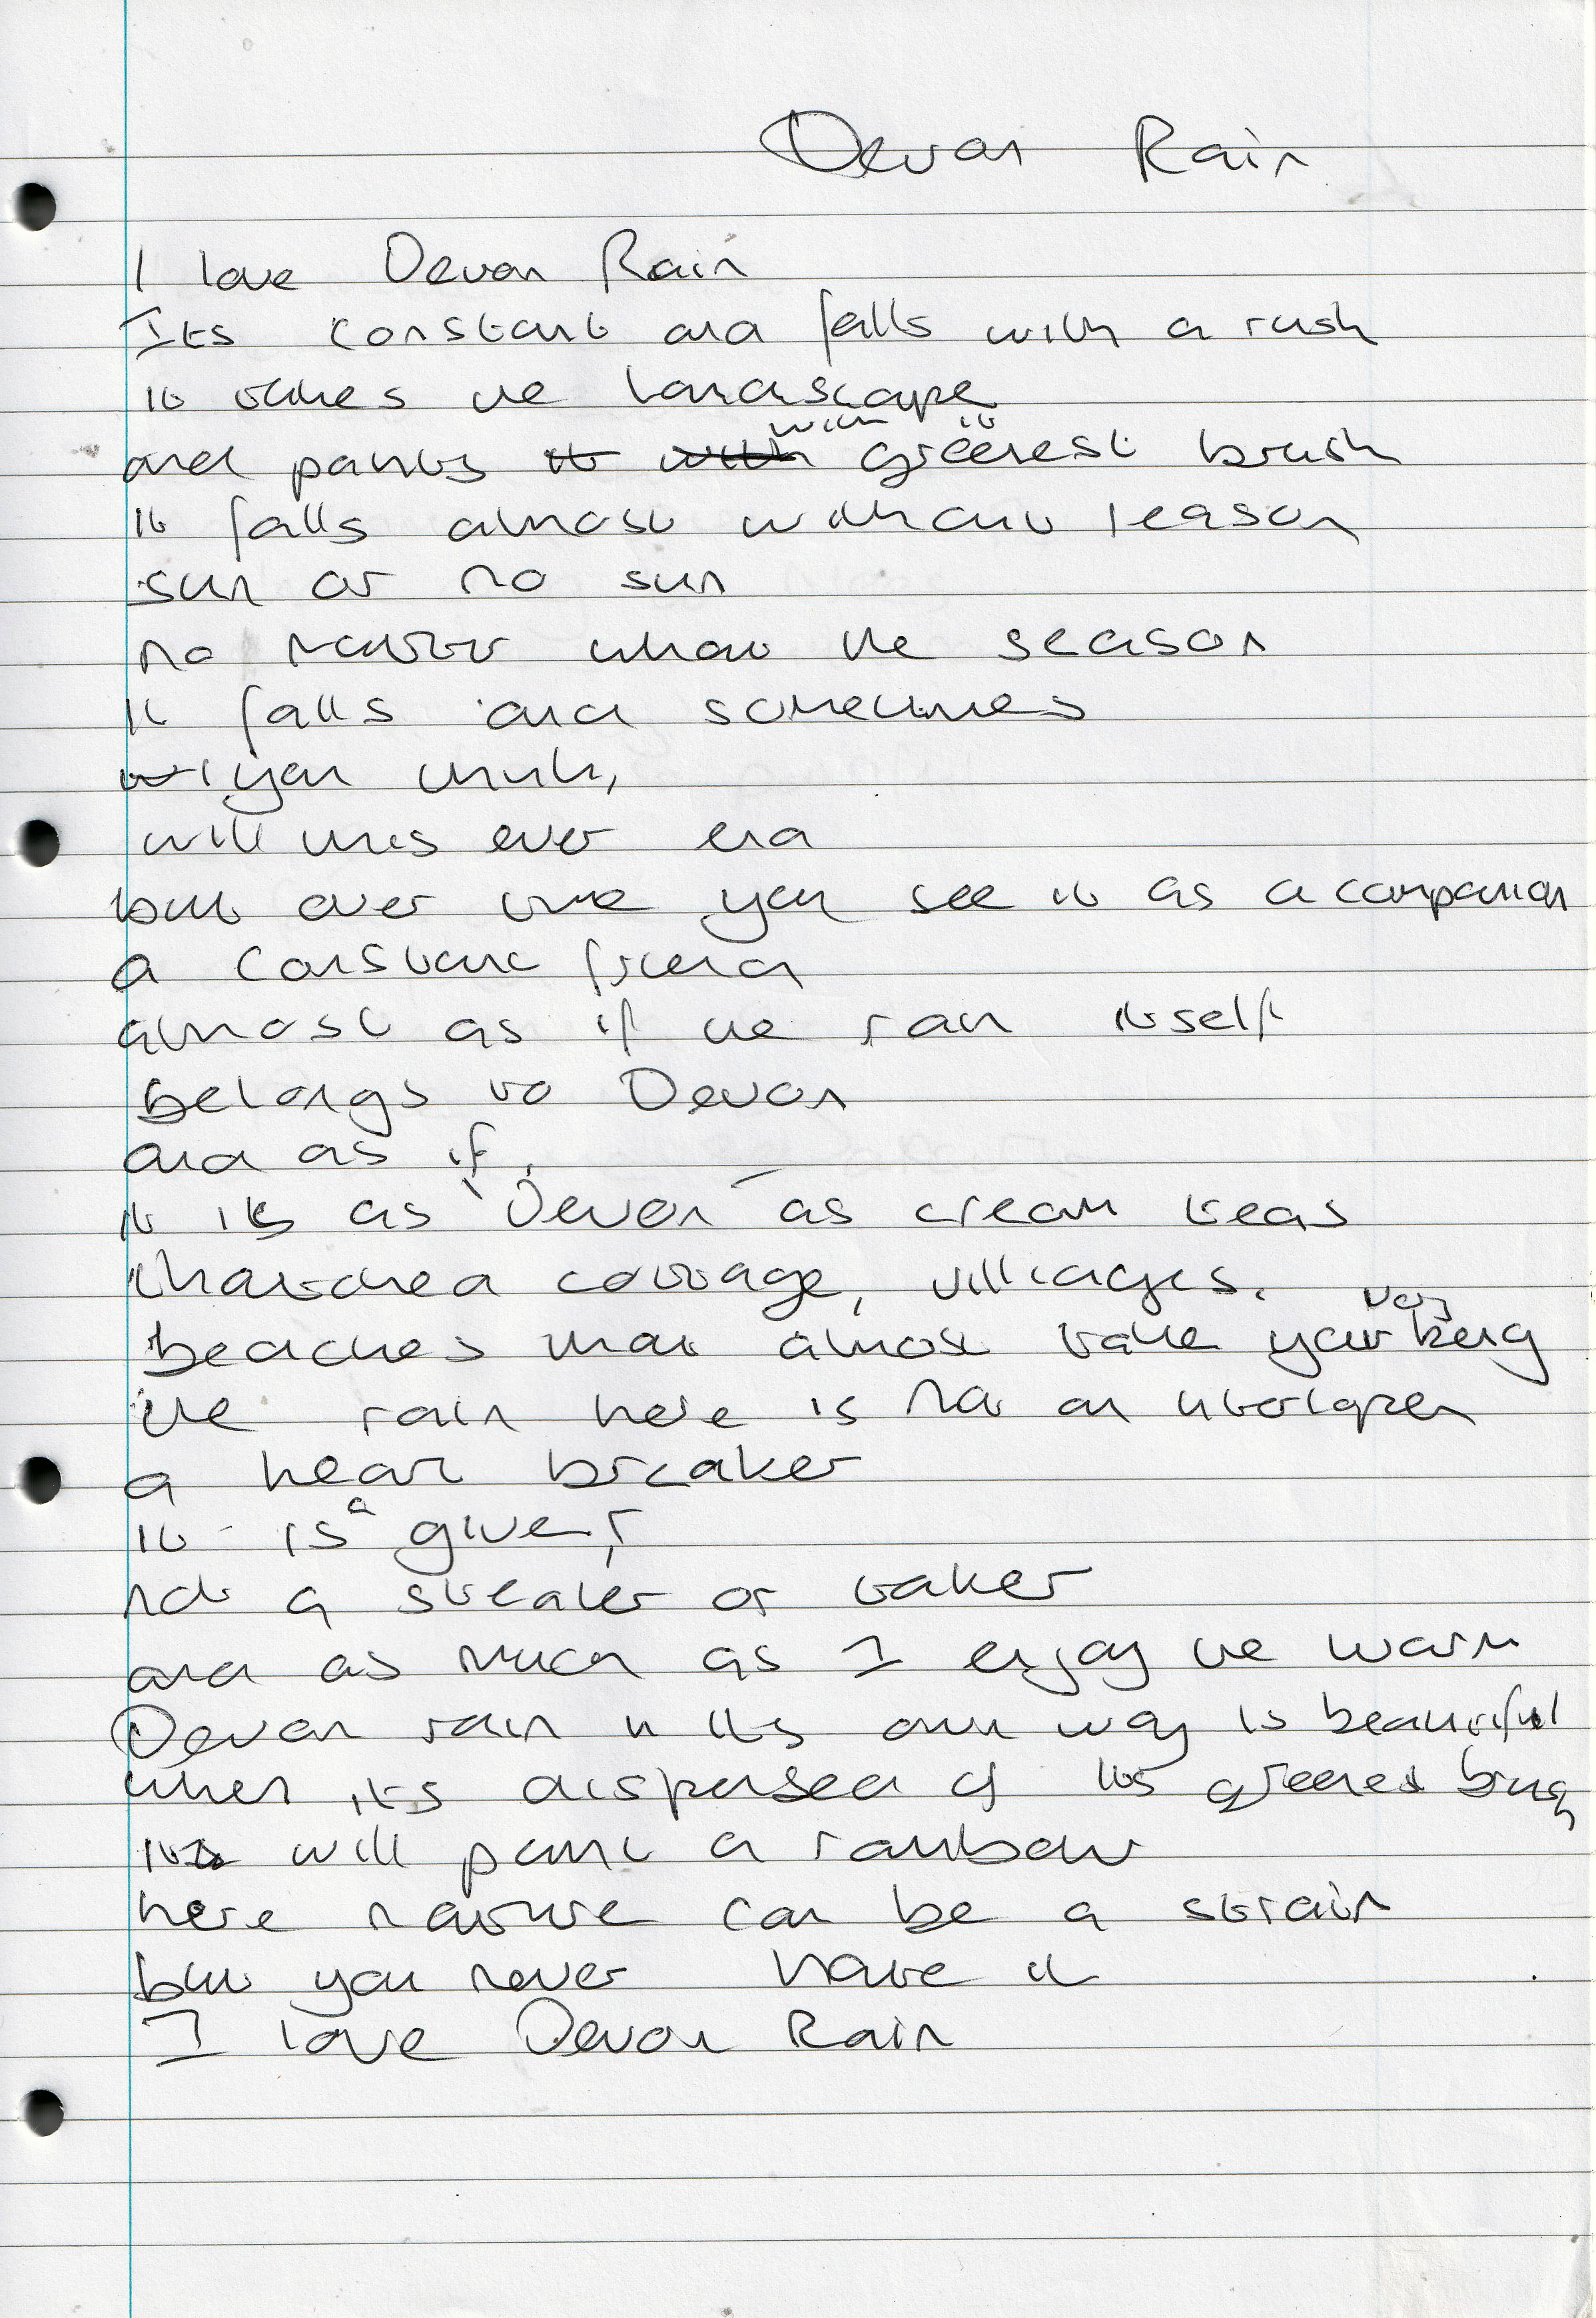 Devon Rain
I love Devon Rain
Its constant and falls with a rush
it takes the landscape
and paints it with with greenest brush
it falls almost without reason
sun or no sun
no matter what the season
it falls and sometimes
you think,
will this ever end
but over time you see it as a companion
a constant friend
almost as if the rain itself
belongs to Devon
and as if,
it is as Devon as cream teas
thatched cottage, villiages,
beaches that almost take your very being
the rain here is not an interloper
a heart breaker
it is a giver,
not a stealer or taker
and as much as I enjoy the warm
Devon rain in its own way is beautiful
when its dispersed of its greenest
it will paint a rainbow
here nature can be a strain
but you never have it
I love Devon Rain